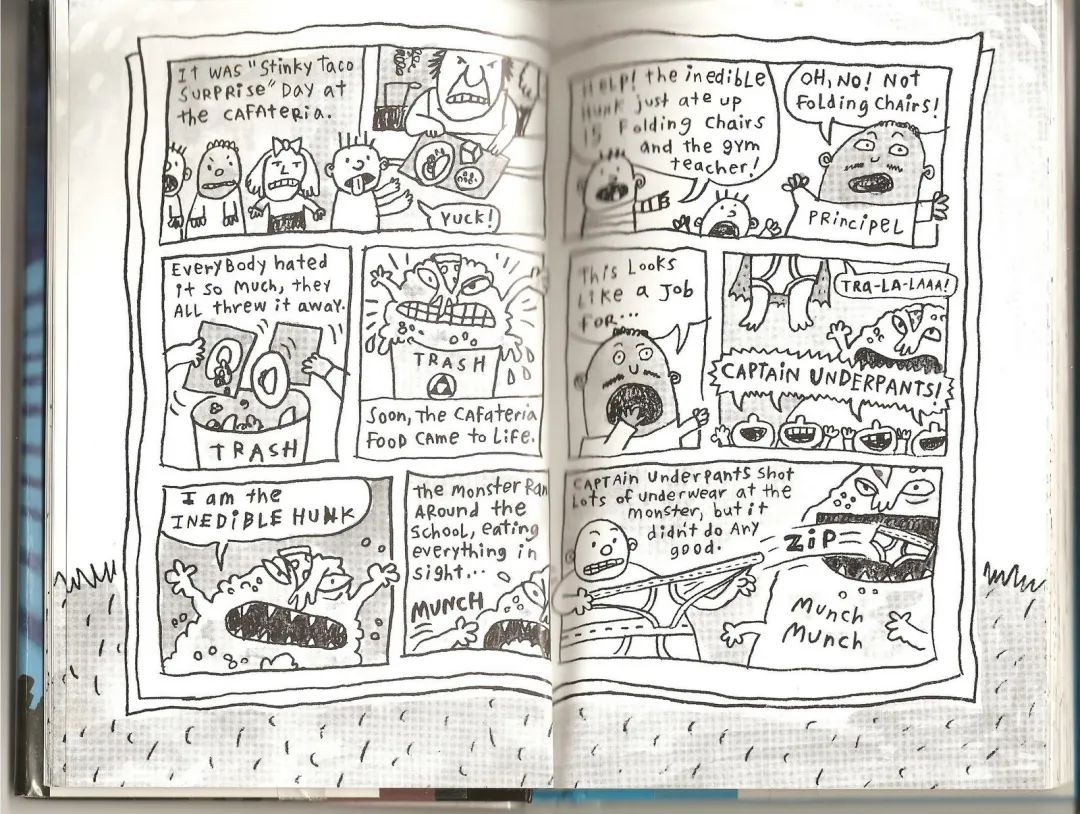 IT WAS "Stinky Taco
SURPRISE" DAY AT
the CAFATERIA.
YUCK!
EveryBody hated
it so much, they
ALL threw it away.
TRASH
TRASH
Soon, The CAFATERIA
FOOD CAME to LIFE.
I am the
INEDIBLE HUNK
the monster RAN
AROUND the
SCHOOL, eating
everything in
sight...
MUNCH
HELP! the inedible
Hunk just ate up
15 Folding Chairs
and the gym
teacher!
OH, NO! Not
Folding Chairs!
PRINCIPEL
This Looks
Like a Job
FOR...
TRA-LA-LAAA!
CAPTAIN UNDERPANTS!
CAPTAIN UnderpANTS SHOT
Lots of underwear at the
monster, but it
didn't do Any
good.
ZIP
Munch
Munch